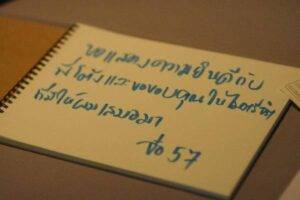 ขอแสดงความยินดีกับ
พี่โต้งและขอขอบคุณในไมตรีจิต
ที่มีให้ผมเสมอมา
ป๋อ 57